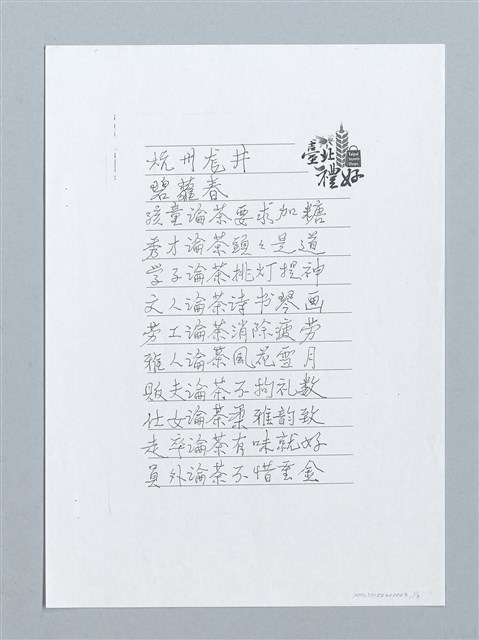 臺北
禮好
杭州龙井
碧蘿春
孩童論茶要求加糖
秀才論茶頭々是道
学子論茶挑灯提神
文人論茶诗书琴画
劳工論茶消除疲劳
雅人論茶風花雪月
販夫論茶不拘礼数
仕女論茶柔雅韵致
走卒論茶有味就好
員外論茶不惜重金